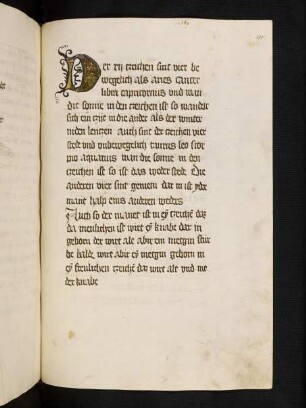 Der xij zeichen sint vier be
wegelich als aries cancer
libra capricornus und wan
die sonne in den zeichen ist so wandelt
sich ein zijt in die ander als der winter
in den lentzen Auch sint der zeichen vier
stede und unbewegelich taurus leo scor
pio aquarius wan die sonne in den
zeichen ist so ist das weder stede Die
anderen vier sint gemein dar in ist yder
mant halp eins anderen weders
Auch so der manet ist in eym zeichen daz
da menschlich ist wirt eyn knabe dar in
geborn der wirt alt Aber ein megtin stir
be bald wirt abir eyn megtin geborn in
eym freulichen zeichen daz wirt alt und nie
der knabe